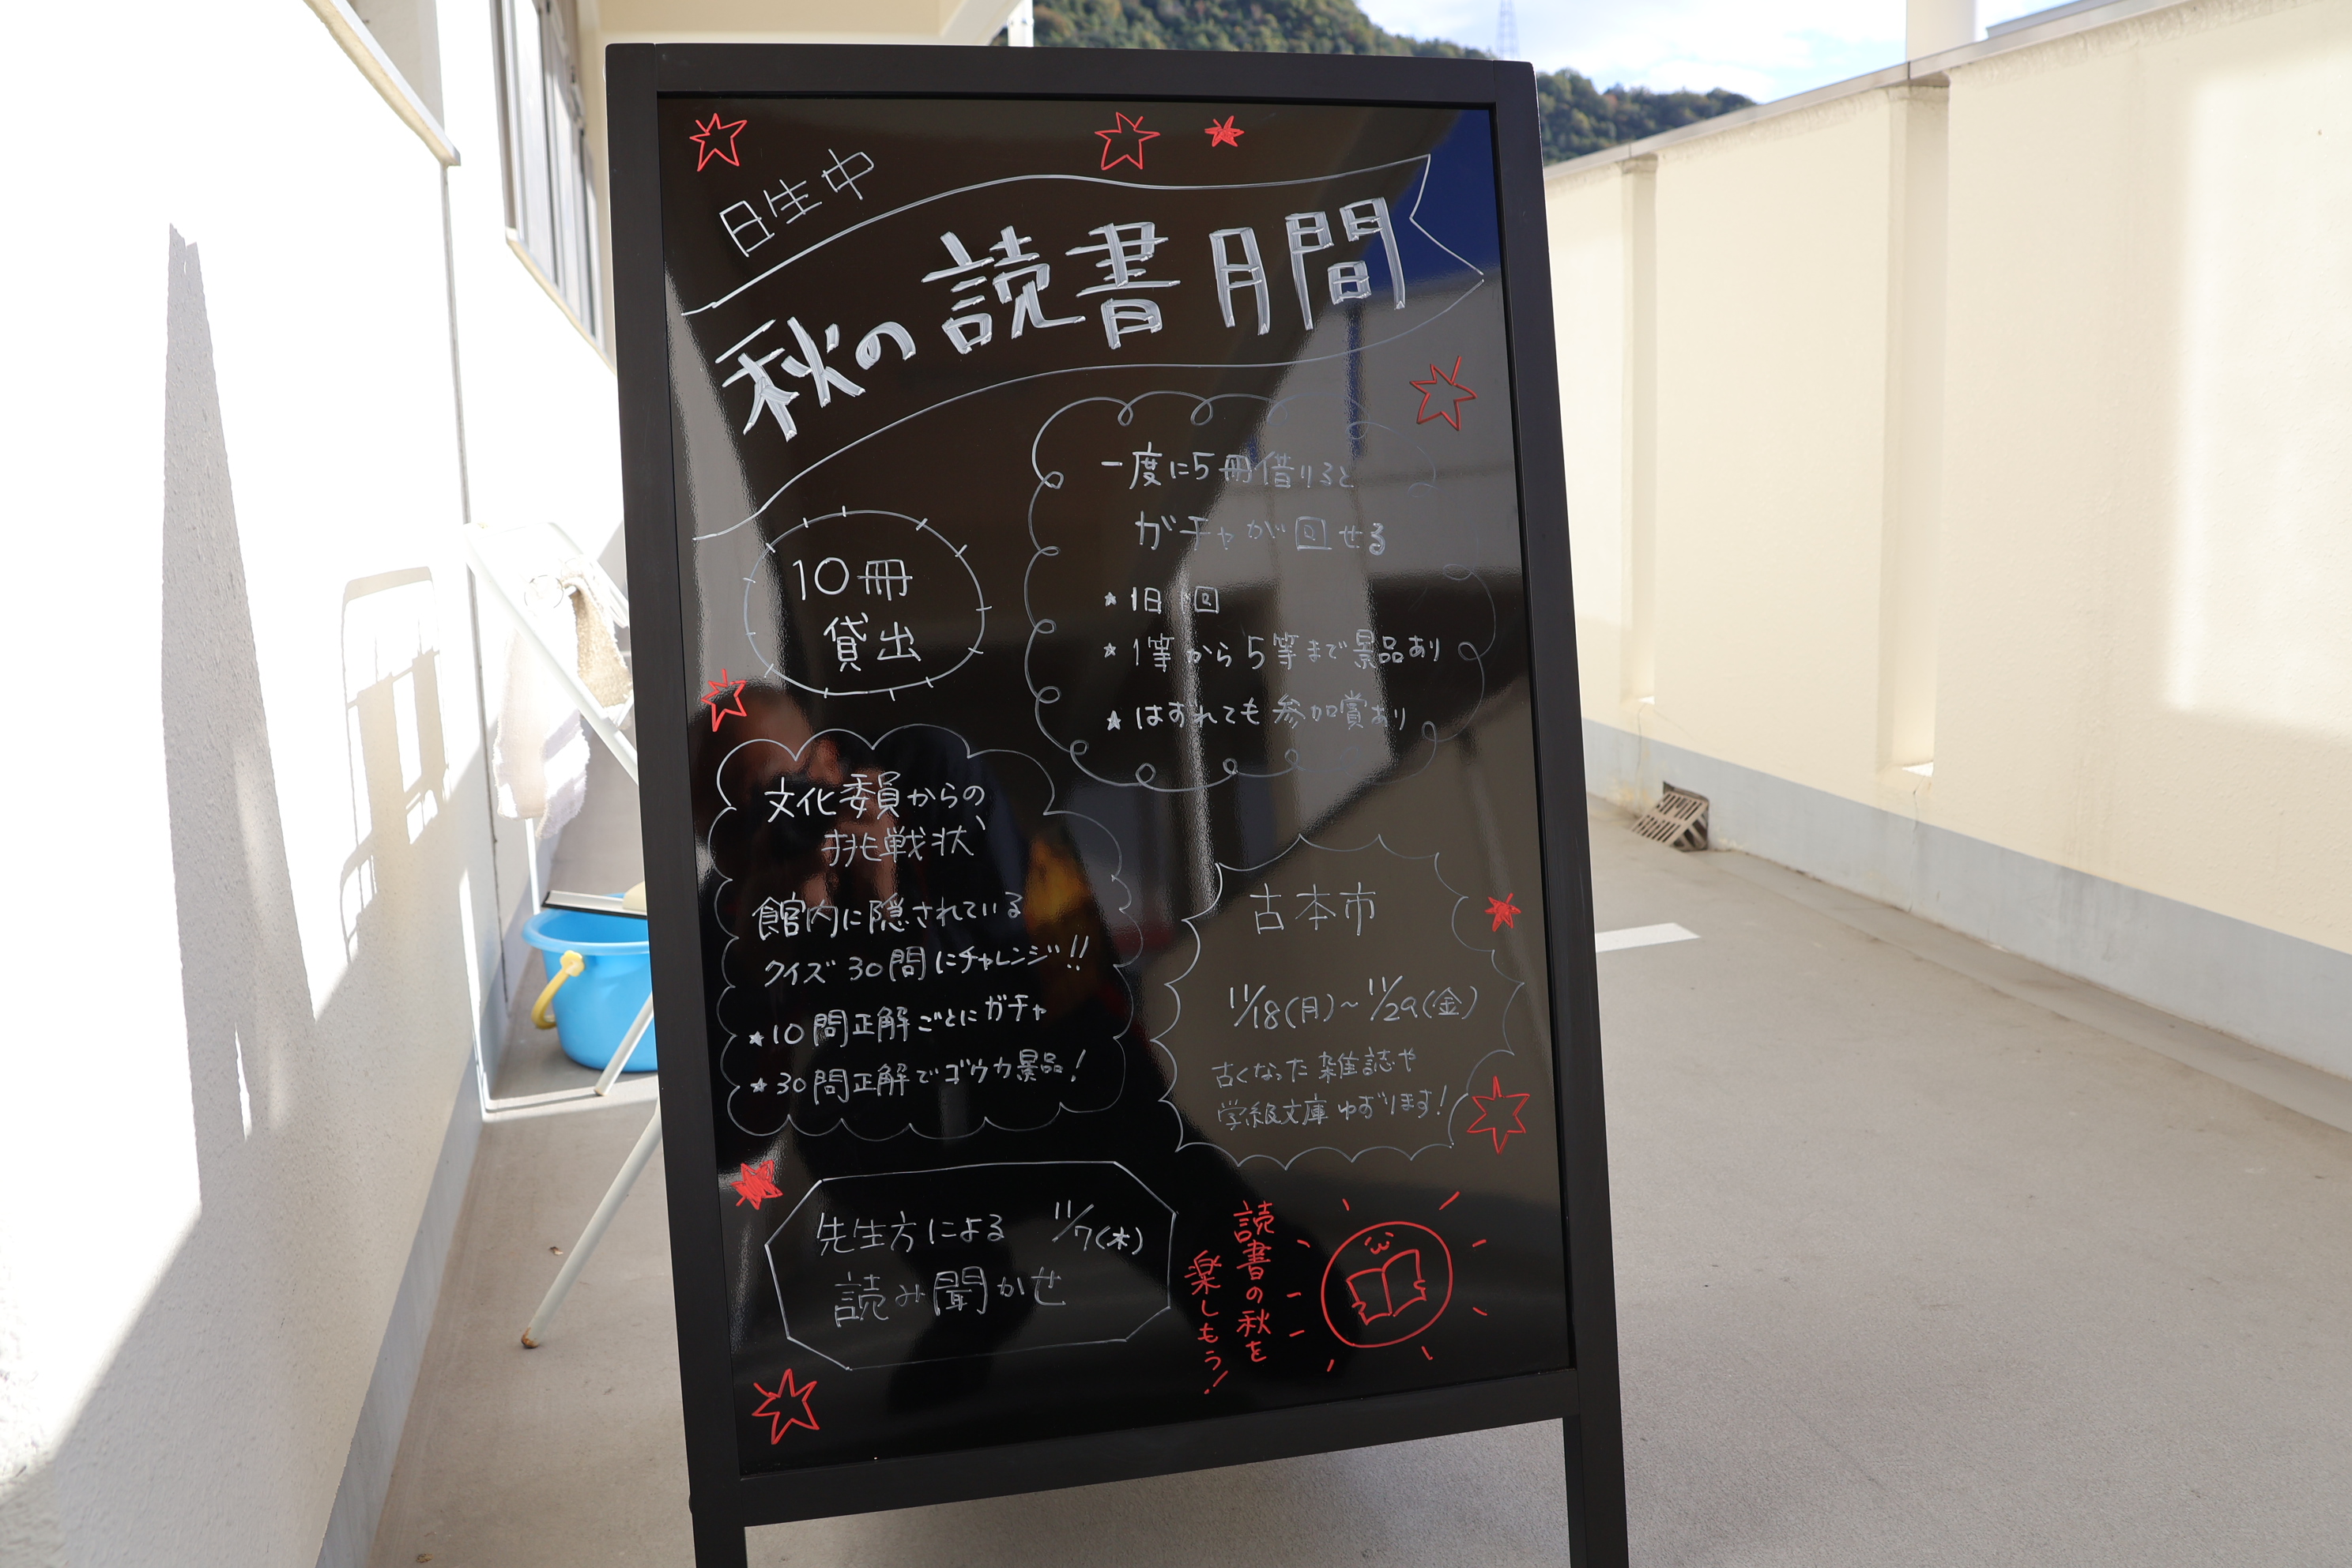 日生中
秋の読書月間
10冊
貸出
一度に5冊借りると
ガチャが回せる
★1日1回
★1等から5等まで景品あり
★はずれても参加賞あり
文化委員からの
挑戦状
館内に隠されている
クイズ30問にチャレンジ!!
★10問正解ごとにガチャ
★30問正解でゴウカ景品!
古本市
11/18(月)~11/29(金)
古くなった雑誌や
学級文庫ゆずります!
先生方による 11/7(木)
読み聞かせ
読書の秋を
楽しもう!